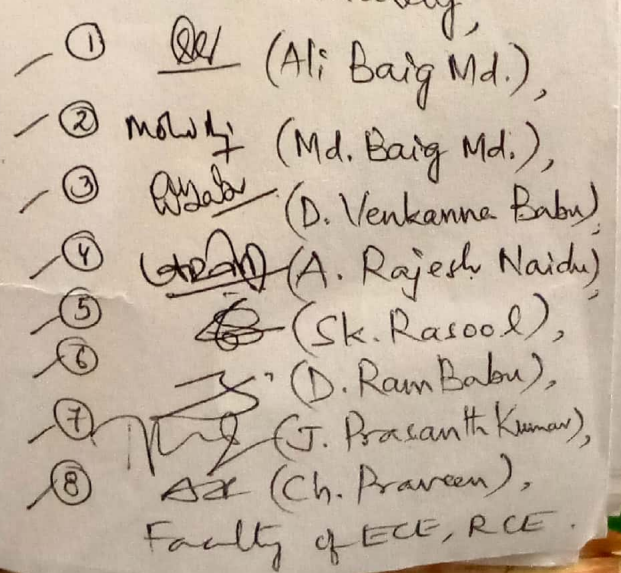 ① (Ali Baig Md.),
② (Md. Baig Md.),
③ (D. Venkanna Babu),
④ (A. Rajesh Naidu),
⑤ (Sk. Rasool),
⑥ (D. Ram Babu),
⑦ (J. Prasanth Kumar),
⑧ (Ch. Praveen),
Faculty of ECE, RCE.